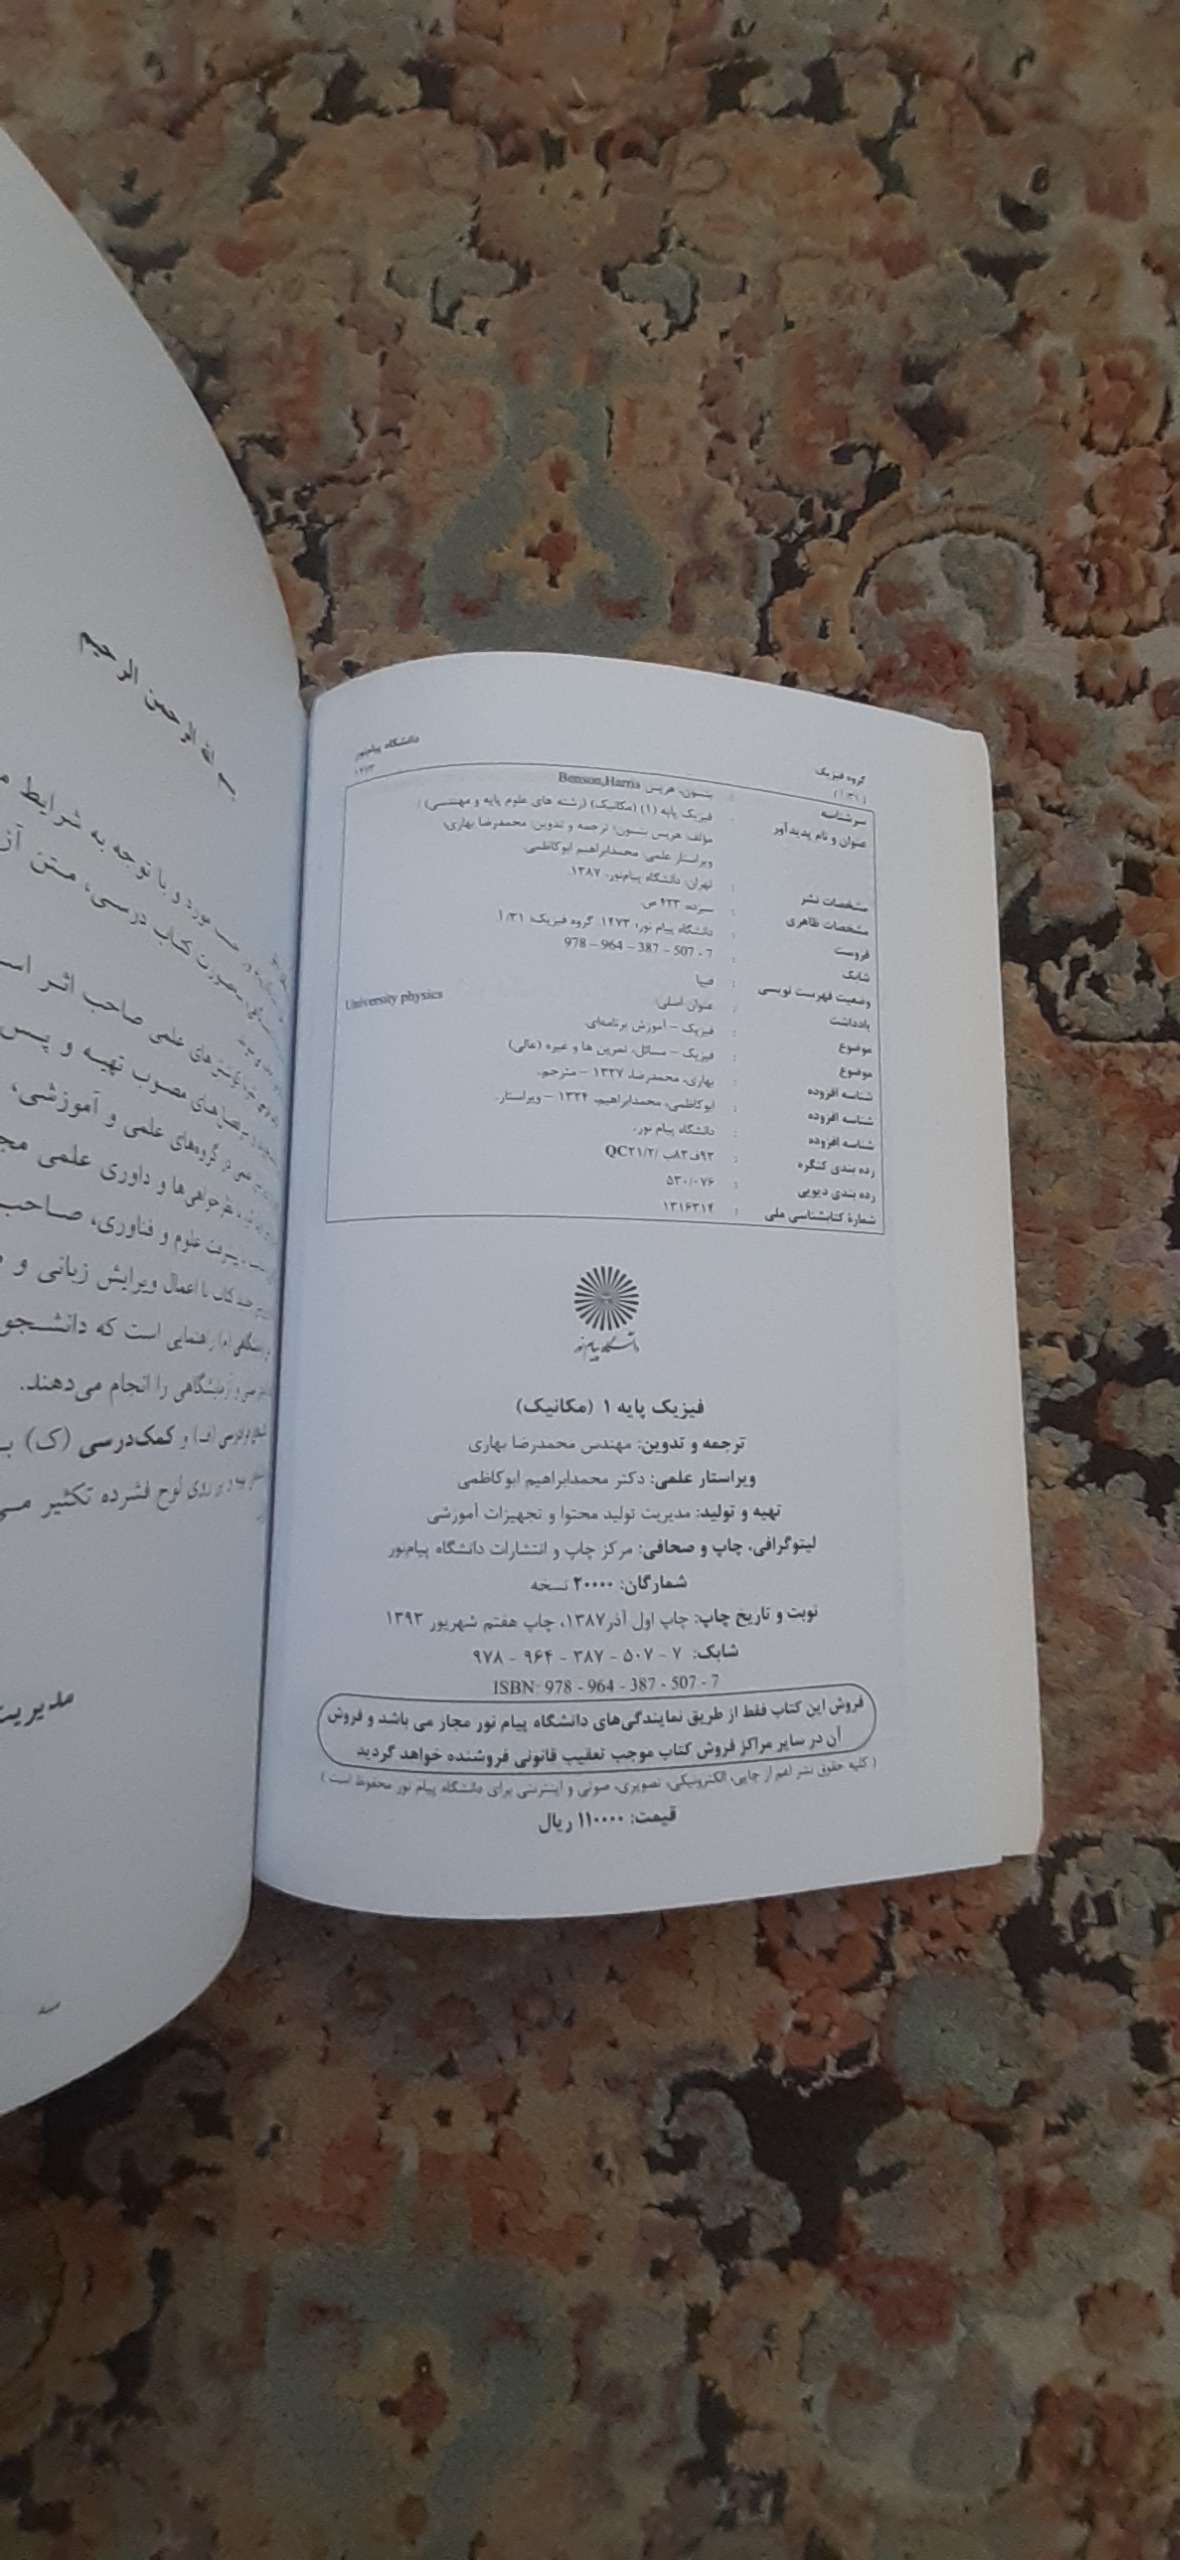 بسم الله الرحمن الرحیم
مورد و با توجه به شرایط
بصورت کتاب درسی، متن
علمی صاحب اثر
مصوب تهیه و پس
در گروه‌های علمی و آموزشی،
نظرخواهی‌ها و داوری علمی
پیشرفت علوم و فناوری، صاحب
کتاب با اعمال ویرایش زبانی و
راهنمایی است که
و آزمایشگاهی را انجام می‌دهند.
(ف) و کمک‌درسی (ک)
بر روی لوح فشرده تکثیر
مدیریت
گروه فیزیک
دانشگاه پیام‌نور
(۳۱/آ)
۱۴۷۳
سرشناسه : بنسون، هریس Benson,Harris
عنوان و نام پدیدآور : فیزیک پایه (۱) (مکانیک) (رشته های علوم پایه و مهندسی) /
مؤلف: هریس بنسون؛ ترجمه و تدوین: محمدرضا بهاری؛
ویراستار علمی: محمدابراهیم ابوکاظمی.
مشخصات نشر : تهران: دانشگاه پیام‌نور، ۱۳۸۷.
مشخصات ظاهری : ۴۲۳ ص.
فروست : دانشگاه پیام نور؛ ۱۴۷۳. گروه فیزیک؛ ۳۱/آ.
شابک : 978 – 964 – 387 – 507 - 7
وضعیت فهرست نویسی : فیپا
یادداشت : عنوان اصلی: University physics
موضوع : فیزیک – آموزش برنامه‌ای.
موضوع : فیزیک – مسائل، تمرین ها و غیره (عالی)
شناسه افزوده : بهاری، محمدرضا، ۱۳۲۷ – مترجم.
شناسه افزوده : ابوکاظمی، محمدابراهیم، ۱۳۲۴ – ویراستار.
شناسه افزوده : دانشگاه پیام نور.
رده بندی کنگره : QC۲۱/۲/ب۸۳ف۹۳
رده بندی دیویی : ۵۳۰/۰۷۶
شمارهٔ کتابشناسی ملی : ۱۳۱۶۳۱۴
دانشگاه پیام نور
فیزیک پایه ۱ (مکانیک)
ترجمه و تدوین: مهندس محمدرضا بهاری
ویراستار علمی: دکتر محمدابراهیم ابوکاظمی
تهیه و تولید: مدیریت تولید محتوا و تجهیزات آموزشی
لیتوگرافی، چاپ و صحافی: مرکز چاپ و انتشارات دانشگاه پیام‌نور
شمارگان: ۲۰۰۰۰ نسخه
نوبت و تاریخ چاپ: چاپ اول آذر۱۳۸۷، چاپ هفتم شهریور ۱۳۹۳
شابک: ۷ - ۵۰۷ - ۳۸۷ - ۹۶۴ - ۹۷۸
ISBN: 978 - 964 - 387 - 507 - 7
فروش این کتاب فقط از طریق نمایندگی‌های دانشگاه پیام نور مجاز می باشد و فروش
آن در سایر مراکز فروش کتاب موجب تعقیب قانونی فروشنده خواهد گردید
( کلیه حقوق نشر اعم از چاپی، الکترونیکی، تصویری، صوتی و اینترنتی برای دانشگاه پیام نور محفوظ است )
قیمت: ۱۱۰۰۰۰ ریال